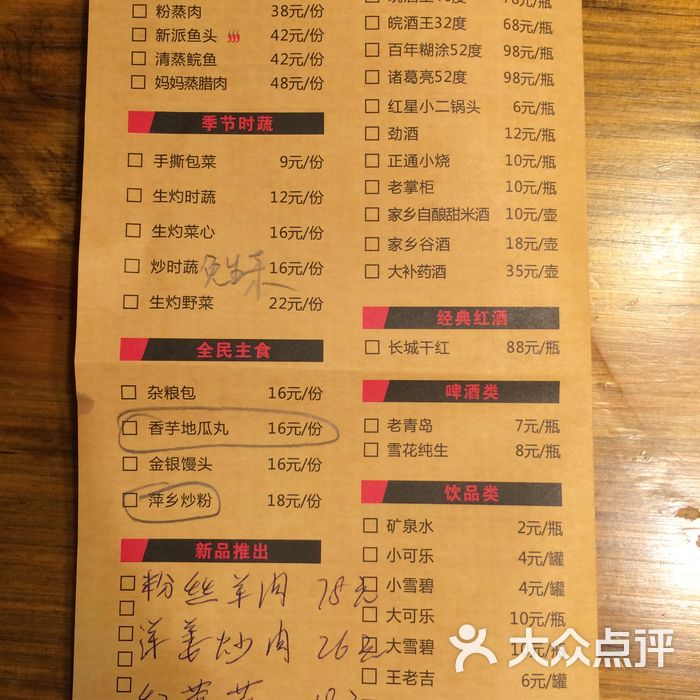 粉蒸肉 38元/份
新派鱼头 42元/份
清蒸鲩鱼 42元/份
妈妈蒸腊肉 48元/份
季节时蔬
手撕包菜 9元/份
生灼时蔬 12元/份
生灼菜心 16元/份
炒时蔬 16元/份
生灼野菜 22元/份
全民主食
杂粮包 16元/份
香芋地瓜丸 16元/份
金银馒头 16元/份
萍乡炒粉 18元/份
新品推出
粉丝羊肉 78元
洋姜炒肉 26元
78元/瓶
皖酒王32度 68元/瓶
百年糊涂52度 98元/瓶
诸葛亮52度 98元/瓶
红星小二锅头 6元/瓶
劲酒 12元/瓶
正通小烧 10元/瓶
老掌柜 10元/瓶
家乡自酿甜米酒 10元/壶
家乡谷酒 18元/壶
大补药酒 35元/壶
经典红酒
长城干红 88元/瓶
啤酒类
老青岛 7元/瓶
雪花纯生 8元/瓶
饮品类
矿泉水 2元/瓶
小可乐 4元/罐
小雪碧 4元/罐
大可乐 10元/瓶
大雪碧 10元/瓶
王老吉 6元/罐
大众点评